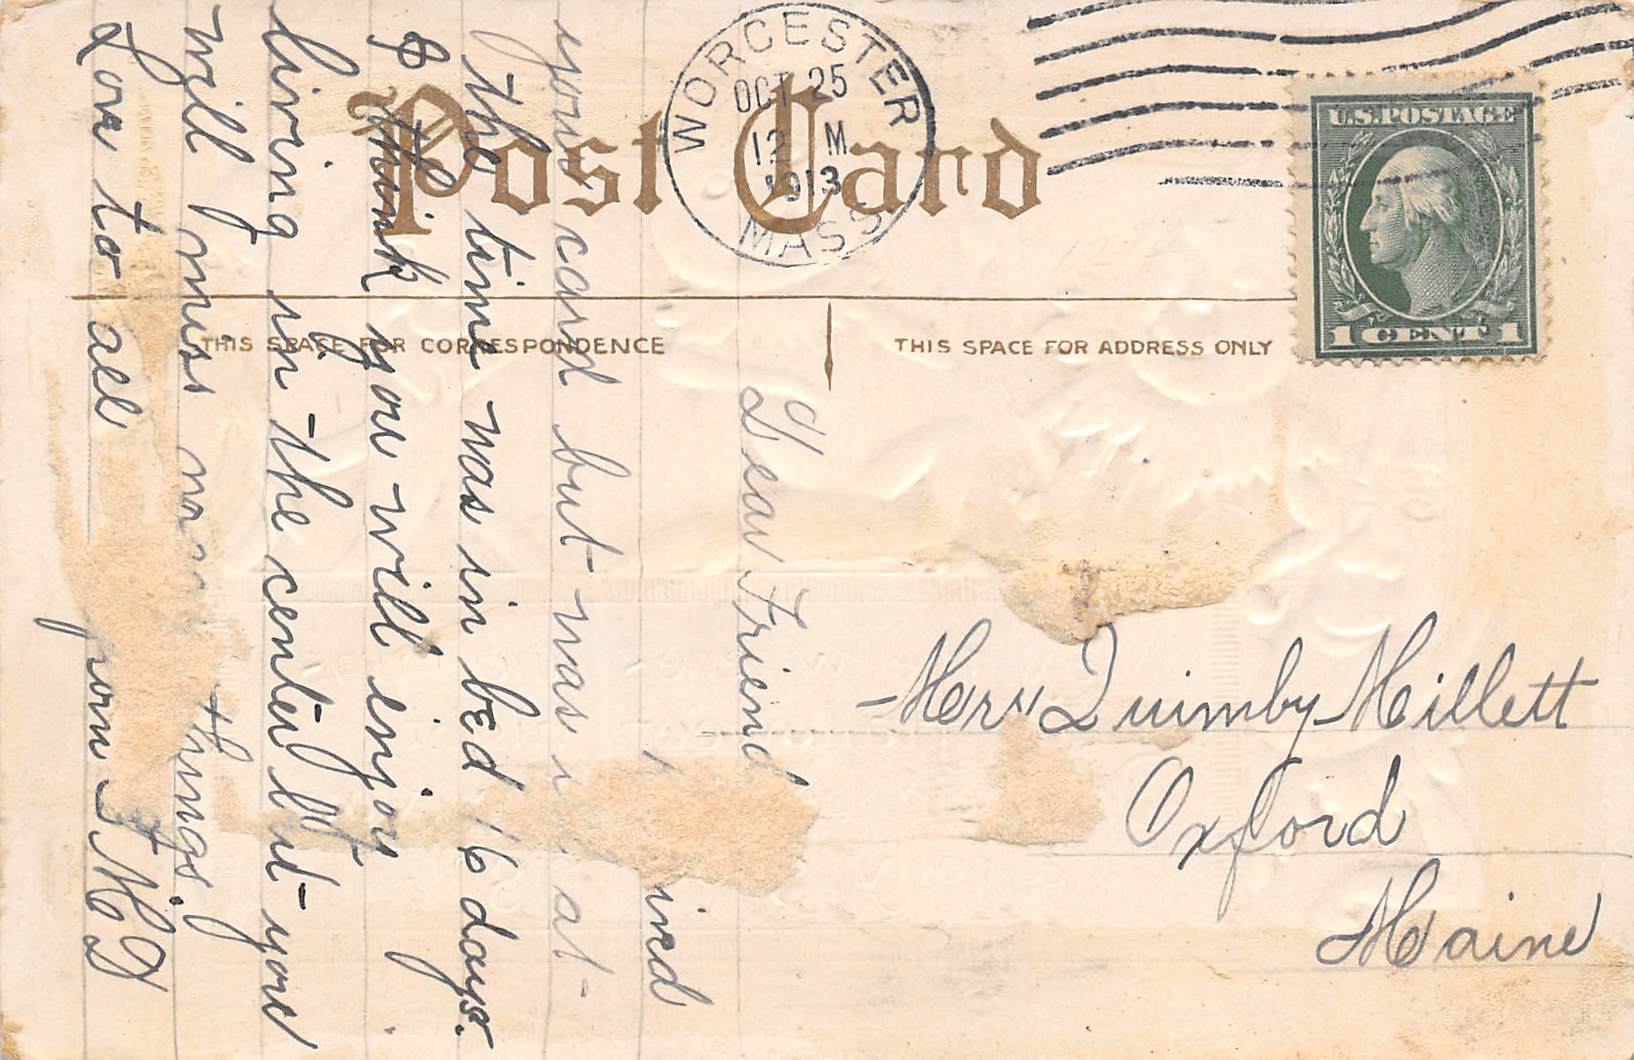 Post Card
WORCESTER
OCT 25
12 M
1913
MASS
U.S. POSTAGE
1 CENT 1
THIS SPACE FOR CORRESPONDENCE
THIS SPACE FOR ADDRESS ONLY
Dear Friend
your card but was at
the time was in bed 16 days.
& think you will enjoy
living in the center but you
will miss things
Love to all from
Mrs Quimby Millett
Oxford
Maine